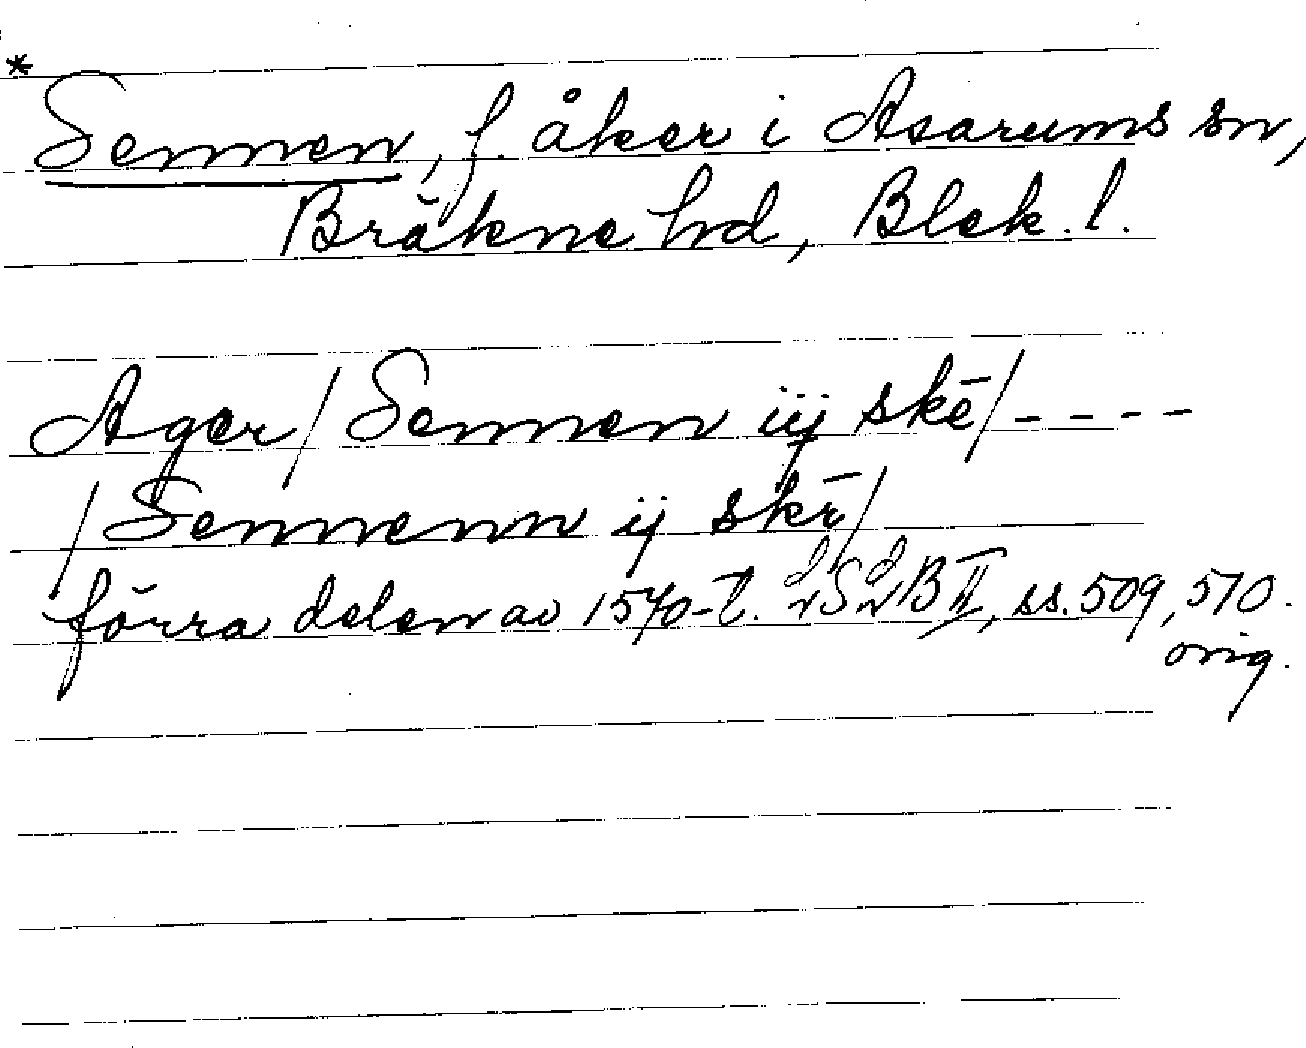 *
Sennen, f. åker i Asarums sn,
Bräkne hd, Blek. l.
Ager/Sennen iij skē/----
/Sennenn ij skr̄/
förra delen av 1570-t. LSLB II, ss. 509, 510.
orig.